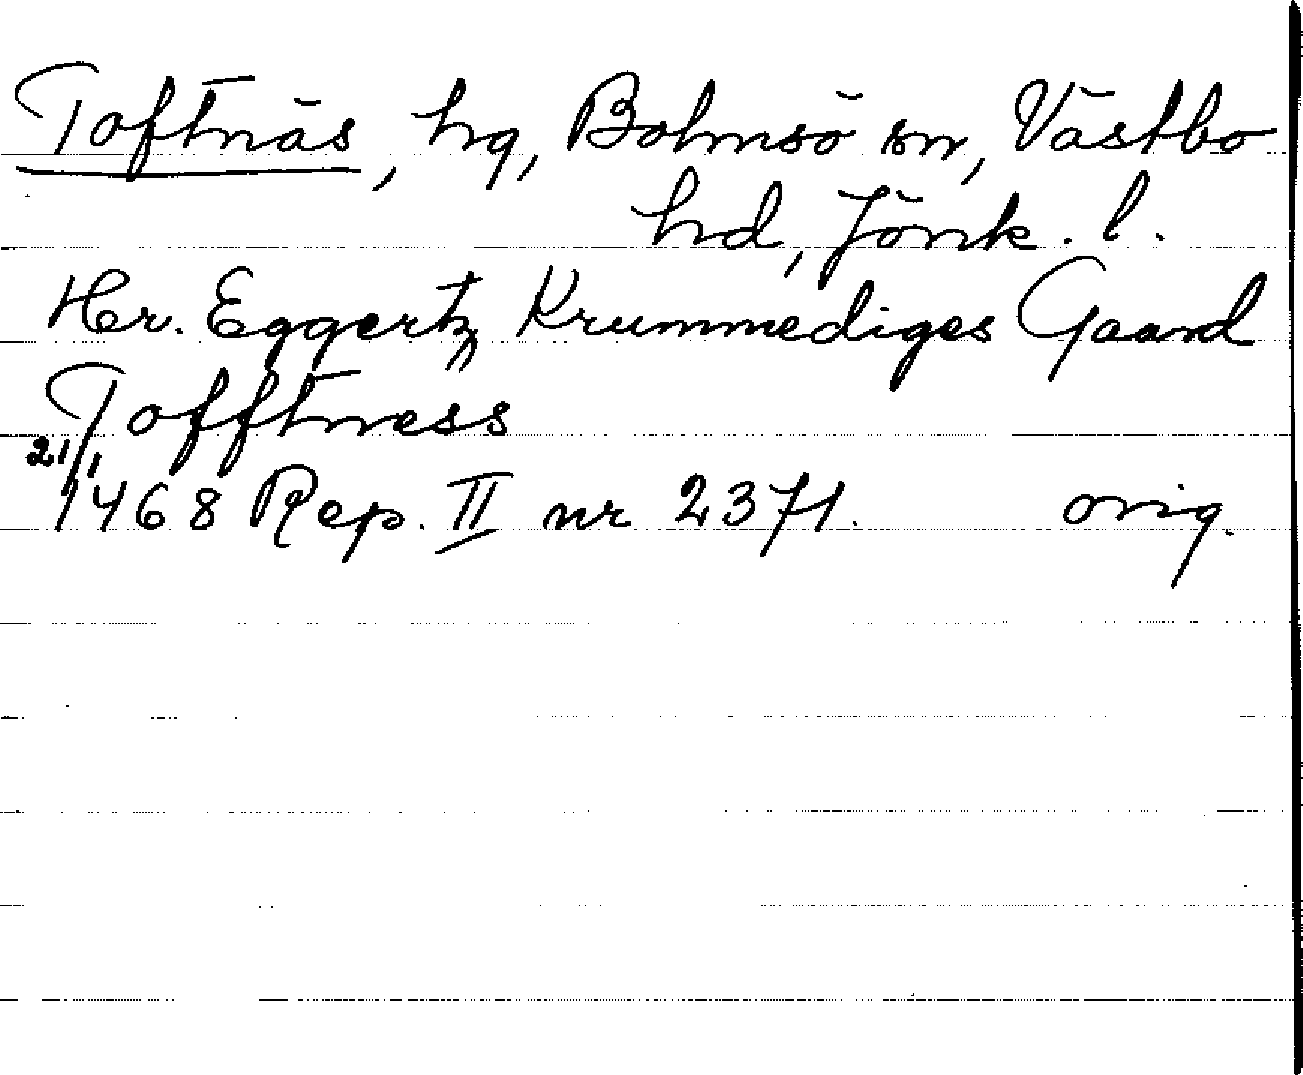 Toftnäs, hg, Bolmsö sn, Västbo
hd, Jönk. l.
Her. Eggertz Krummediges Gaard
Tofftness
21/1
1468 Rep. II nr 2371. orig.